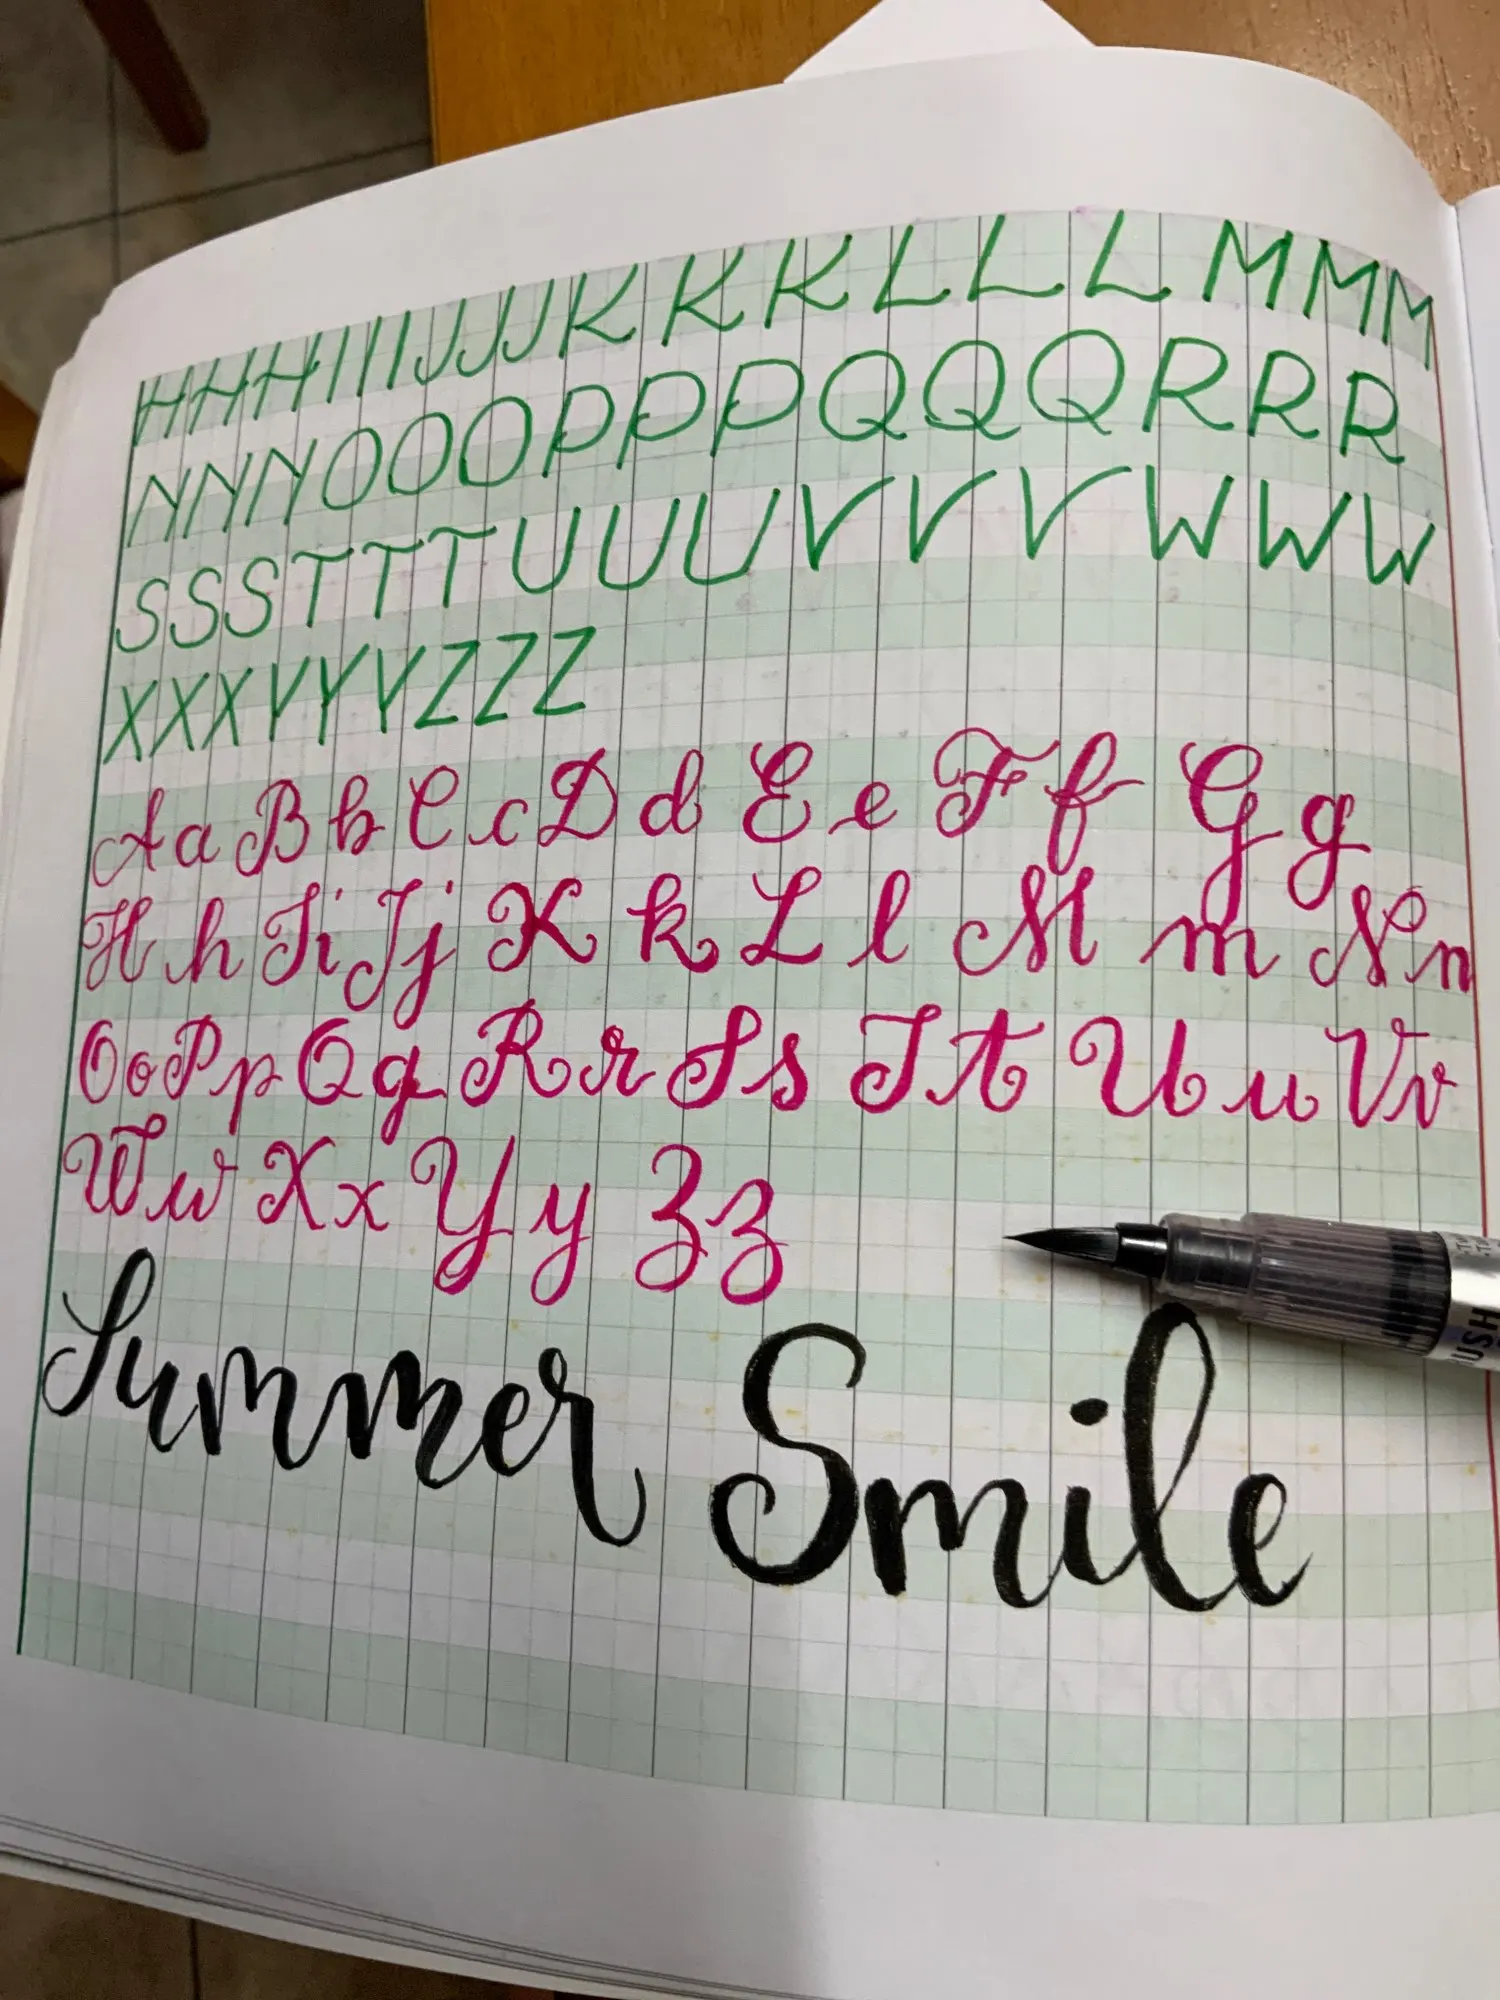 HHHIIIJJJKKKLLLMMM
NNNOOOPPPQQQRRR
SSSTTTUUUVVVWWW
XXXYYYZZZ
Aa Bb Cc Dd Ee Ff Gg
Hh Ii Jj Kk Ll Mm Nn
Oo Pp Qq Rr Ss Tt Uu Vv
Ww Xx Yy Zz
Summer Smile